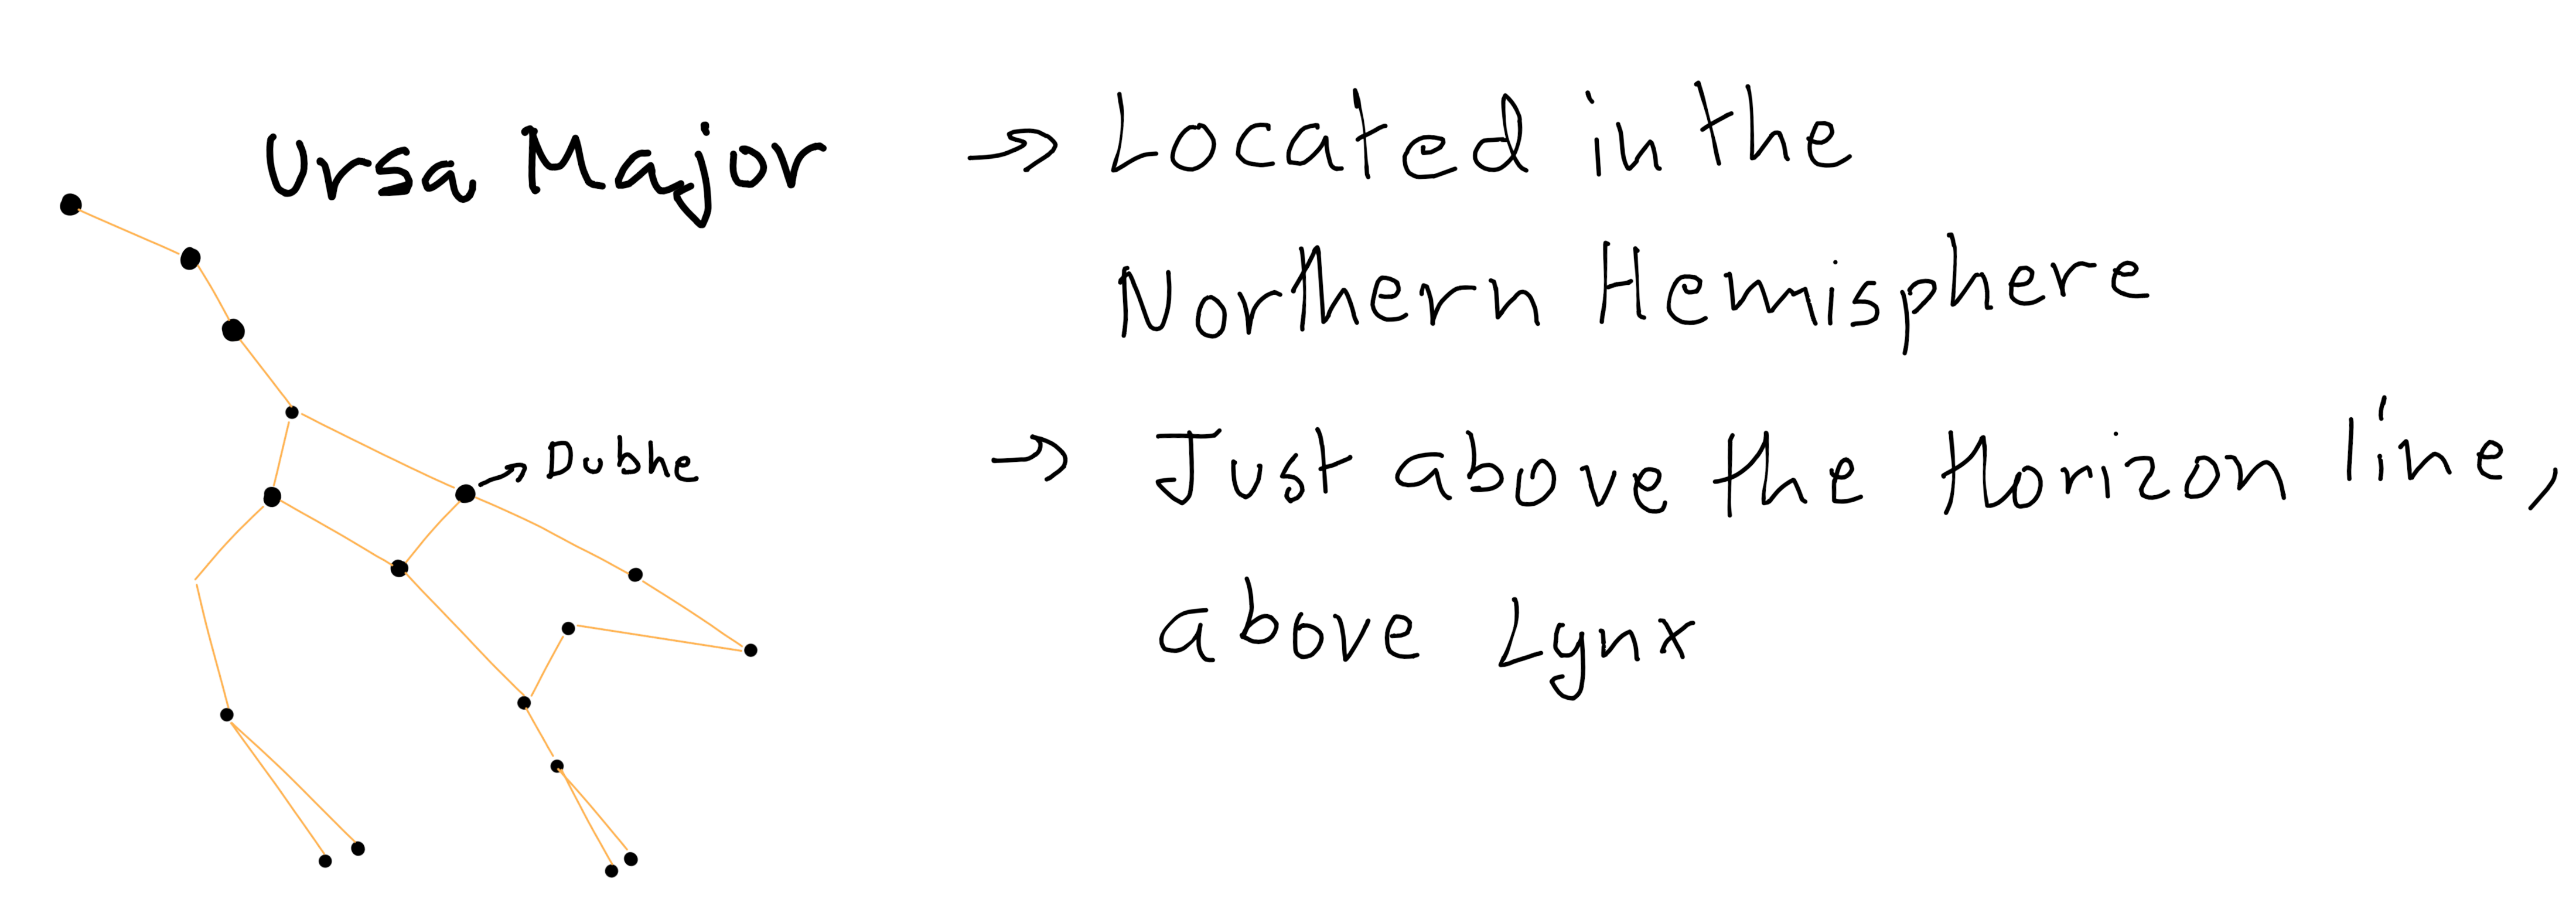 Ursa Major
→ Located in the
Northern Hemisphere
→ Dubhe
→ Just above the Horizon line,
above Lynx